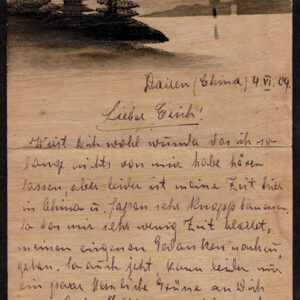 Dairen (China) 4.VI.09.
Lieber Erich!
Wirst Dich wohl wundern das ich so
lange nichts von mir habe hören
lassen, aber leider ist meine Zeit hier
in China u. Japan sehr knapp
so das mir sehr wenig Zeit
meinen eigenen Gedanken
geben. So auch jetzt, kann leider nur
ein paar Herzliche Grüsse an Dich